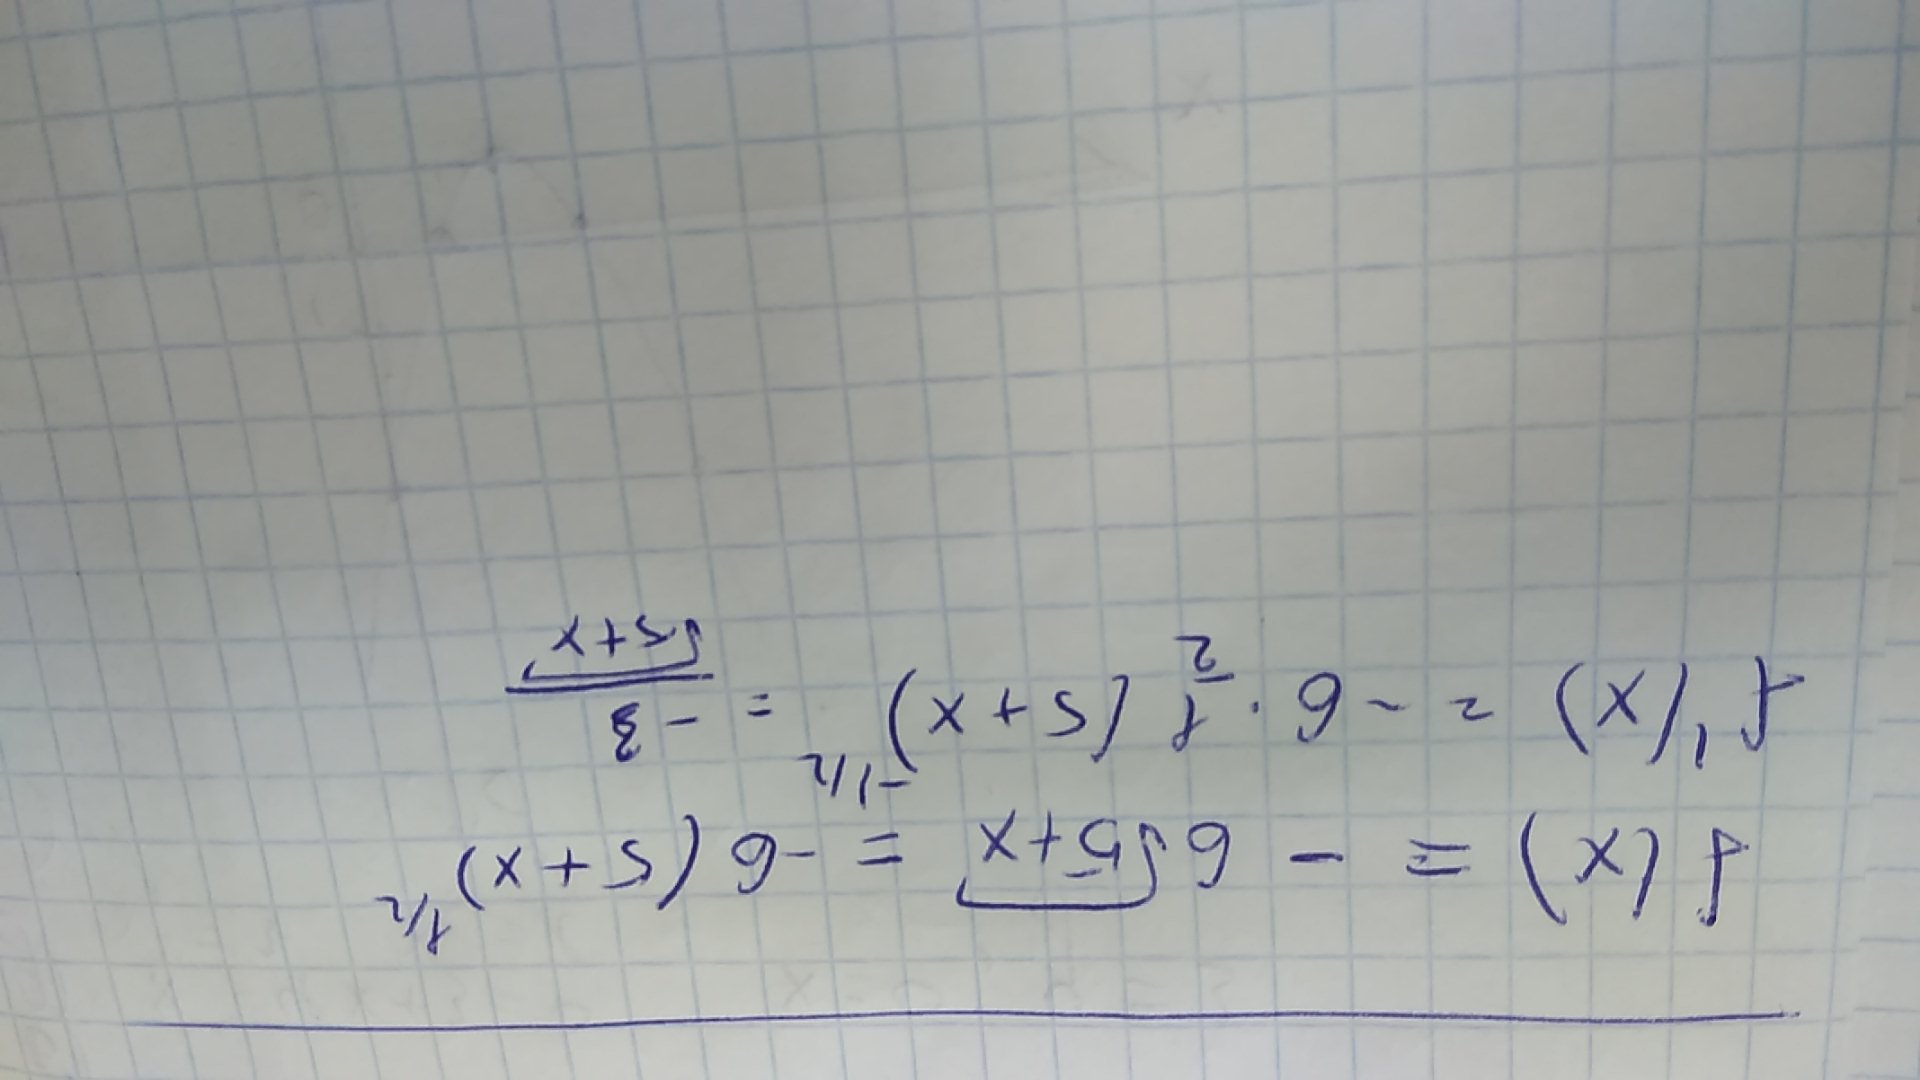 f(x) = - 6√(5+x) = -6(5+x)^1/2
f'(x) = - 6 · 1/2 (5+x)^-1/2 = -3/√(5+x)